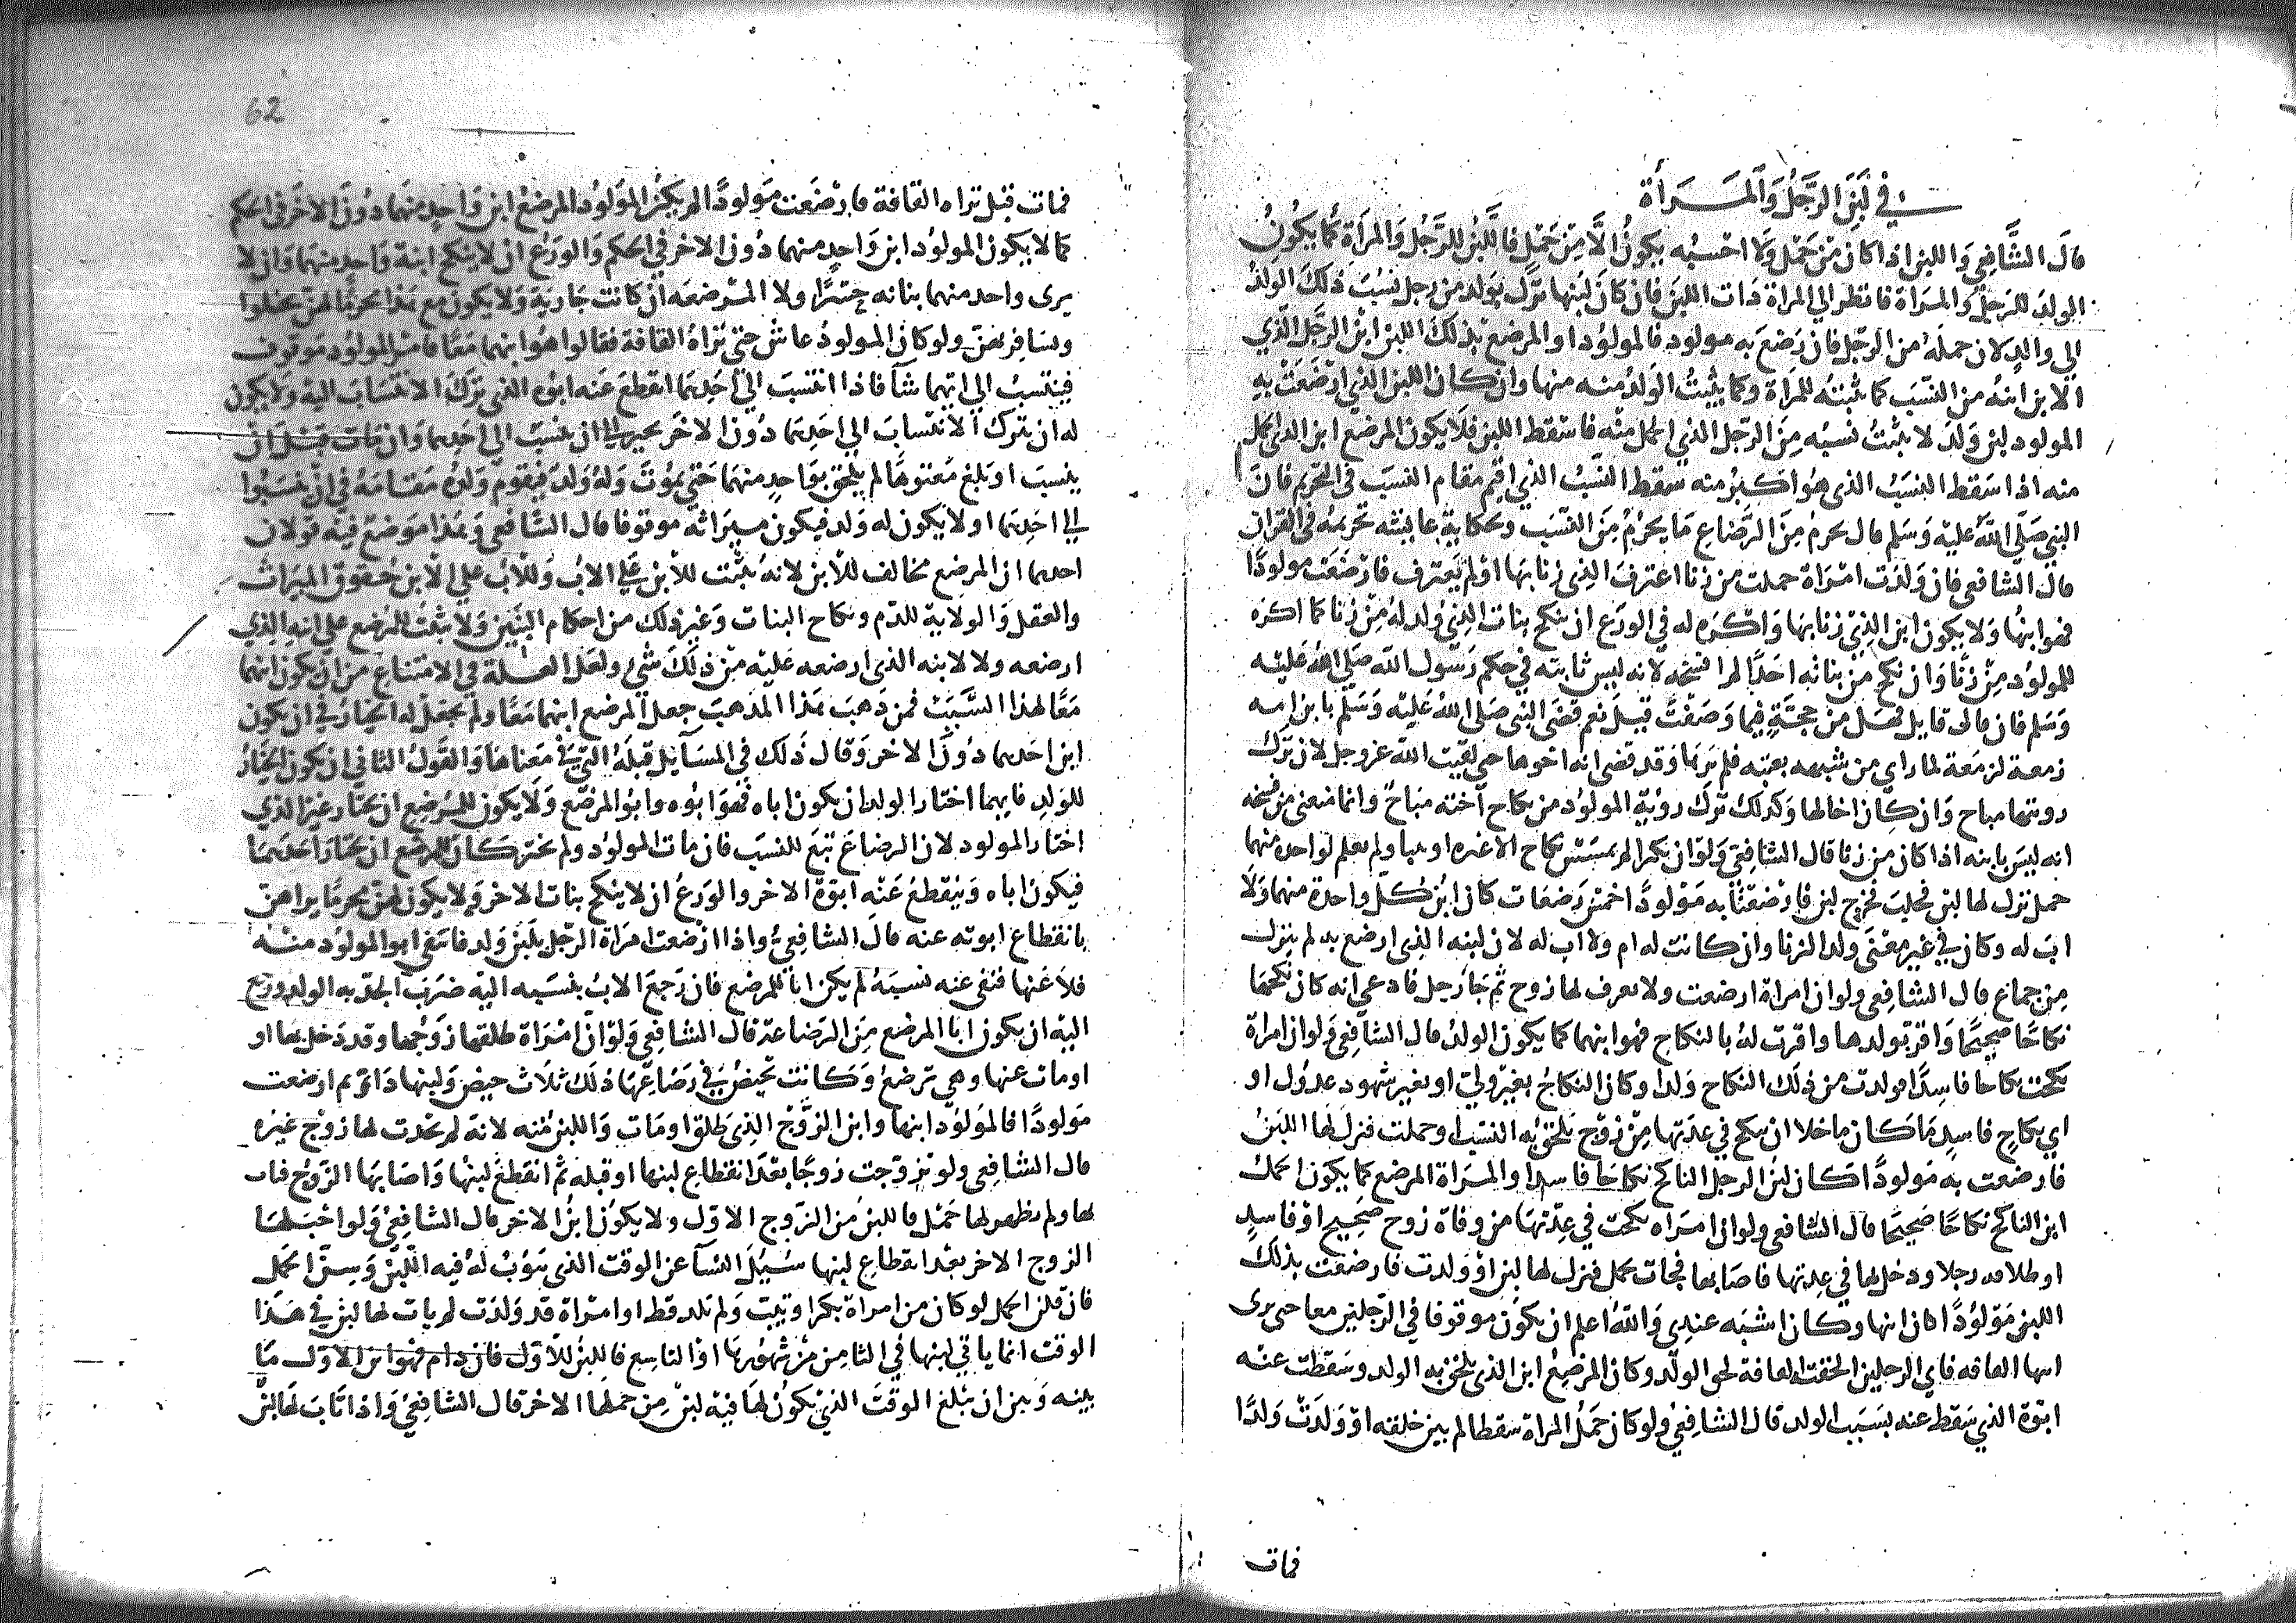 في لبن الرجل والمرأة
قال الشافعي واللبن اذا كان من حمل ولا احسبه يكون الا من حمل فاللبن للرجل والمرأة كما يكون
الولد للرجل والمراة فانظر الي المراة ذات اللبن فان كان لبنها نزل بولد من رجل نسب ذلك الولد
الي والد لان حمله من الرجل فان رضع به مولود فالمولود او المرضع بذلك اللبن ابن الرجل الذي
الابن ابنه من النسب كما ثبته للمراة وكما يثبت الولد منه منها وان كان اللبن الذي ارضعت به
المولود لبن ولد لا يثبت نسبه من الرجل الذي الحمل منه فاسقط اللبن فلا يكون المرضع ابن الذي الحمل
منه اذا سقط النسب الذي هو اكبر منه سقط النسب الذي اقيم مقام النسب في التحريم فان
النبي صلى الله عليه وسلم قال يحرم من الرضاع ما يحرم من النسب وحكاية عايشه تحريمه في القران
قال الشافعي فان ولدت امراة حملت من زنا اعترف الذي زنا بها او لم يعترف فارضعت مولودا
فهو ابنها ولا يكون ابن الذي زنا بها واكره له في الورع ان ينكح بنات الذي ولد له من زنا كما اكره
للمولود من زنا وان نكح من بناته احدا لم افسخه لانه ليس بابنه في حكم رسول الله صلى الله عليه
وسلم فان قال قايل فهل من حجة فيما وصفت قيل نعم قضى النبي صلى الله عليه وسلم بابن امه
زمعة لزمعة لما راي من شبهه بعتبه فلم يرها وقد قضى انه اخوها حتى لقيت الله عز وجل لان ترك
رويتها مباح وان كان اخا لها وكذلك ترك روية المولود من نكاح اخته مباح وانما منعنى من فسخه
انه ليس بابنه اذا كان من زنا قال الشافعي ولو ان بكرا لم تمسس بنكاح الا غيره او ثيبا ولم يعلم لواحدة منهما
حمل نزل لها لبن فحلب فخرج لبن فارضعتا به مولودا خمس رضعات كان ابن كل واحدة منهما ولا
اب له وكان في غير معنى ولد الزنا وان كانت له ام ولا اب له لان لبنه الذي ارضع به لم ينزل
من جماع قال الشافعي ولو ان امراة ارضعت ولا يعرف لها زوج ثم جا رجل فادعى انه كان نكحها
نكاحا صحيحا واقر بولدها واقرت له بالنكاح فهو ابنهما كما يكون الولد قال الشافعي ولو ان امراة
نكحت نكاحا فاسدا فولدت من ذلك النكاح ولدا وكان النكاح بغير ولي او بغير شهود عدول او
اي نكاح فاسد ما كان ما خلا ان ينكح في عدتها من زوج يلحق به النسب او حملت فنزل لها اللبن
فارضعت به مولودا كان لبن الرجل الناكح نكاحا فاسدا والمراة المرضع كما يكون الحمل
ابن الناكح نكاحا صحيحا قال الشافعي ولو ان امراه نكحت في عدتها من وفاة زوج صحيح او فاسد
او طلاقه رجلا ودخل بها في عدتها فاصابها فجات بحمل فنزل لها لبن او ولدت فارضعت بذلك
اللبن مولودا كان ابنها وكان اشبه عندي والله اعلم ان يكون موقوفا في الرجلين معا حتى يرى
ابنها القافه فاي الرجلين الحقت القافة لحق الولد وكان المرضع ابن الذي يلحق به الولد وسقطت عنه
ابوة الذي سقط عنه بسبب الولد قال الشافعي ولو كان حمل المراة سقطا لم يبن خلقه او ولدت ولدا
فمات
62
فمات قبل تراه القافة فارضعت مولودا لم يكن المولود المرضع ابن واحد منهما دون الاخر في الحكم
كما لا يكون المولود ابن واحد منهما دون الاخر في الحكم والورع ان لا ينكح ابنة واحد منهما وان لا
يرى واحد منهما بناته حسرا ولا المرضعه ان كانت جارية ولا يكون مع هذا محرما لهن يخلوا
ويسافر بهن ولو كان المولود عاش حتى تراه القافة فقالوا هو ابنهما معا فامر المولود موقوف
فينتسب الي ايهما شا فاذا انتسب الي احدهما انقطع عنه ابوه الذي ترك الانتساب اليه ولا يكون
له ان يترك الانتساب الي احدهما دون الاخر يجبر الي ان ينتسب الي احدهما وان مات قبل ان
ينتسب او بلغ معتوها لم يلحق بواحد منهما حتى يموت وله ولد فيقوم ولده مقامه في ان ينتسبوا
الي احدهما او لا يكون له ولد فيكون ميراثه موقوفا قال الشافعي وهذا موضع فيه قولان
احدهما ان المرضع مخالف للابن لانه يثبت للابن على الاب وللاب على الابن حقوق الميراث
والعقل والولاية للدم ونكاح البنات وغير ذلك من احكام البنين ولا يثبت للمرضع على ابنه الذي
ارضعه ولا لابنه الذي ارضعه عليه من ذلك شي ولعل العلة في الامتناع من ان يكون ابنهما
معا لهذا السبب فمن ذهب هذا المذهب جعل المرضع ابنهما معا ولم يجعل له الخيار في ان يكون
ابن احدهما دون الاخر وقال ذلك في المسايل قبله التي في معناها والقول الثاني ان يكون الخيار
للولد فايهما اختار الولد ان يكون اباه فهو ابوه وابو المرضع ولا يكون للمرضع ان يختار غير الذي
اختار المولود لان الرضاع تبع للنسب فان مات المولود ولم يختر كان للمرضع ان يختار احدهما
فيكون اباه وينقطع عنه ابوة الاخر والورع ان لا ينكح بنات الاخر ولا يكون لهن محرما يراهن
بانقطاع ابوته عنه قال الشافعي واذا ارضعت امراة الرجل بلبن ولد فانتفى ابو المولود منه
فلاعنها فنفى عنه نسبه لم يكن ابا للمرضع فان رجع الاب ينسبه اليه ضرب الحد به الولد ورجع
اليه ان يكون ابا المرضع من الرضاعة قال الشافعي ولو ان امراة طلقها زوجها وقد دخل بها او
او مات عنها وهي ترضع وكانت تحيض في رضاعها ذلك ثلاث حيض ولبنها دائم ارضعت
مولودا فالمولود ابنها وابن الزوج الذي طلق او مات واللبن منه لانه لم يحدث لها زوج غيره
قال الشافعي ولو تزوجت زوجا بعد انقطاع لبنها او قبله ثم انقطع لبنها واصابها الزوج فثاب
لها ولم يظهر لها حمل فاللبن من الزوج الاول ولا يكون ابن الاخر قال الشافعي ولو احبلها
الزوج الاخر بعد انقطاع لبنها سئل النسا عن الوقت الذي يثوب له فيه اللبن وسن الحمل
فان قلن الحمل لو كان من امراة بكر او ثيب ولم تلد قط او امراة قد ولدت لم يات لها لبن في هذا
الوقت انما ياتي لبنها في الثامن من شهورها او التاسع فاللبن للاول فان دام فهو ابن الاول ما
بينه وبين ان تبلغ الوقت الذي يكون لها فيه لبن من حملها الاخر قال الشافعي واذا ثاب لها لبن